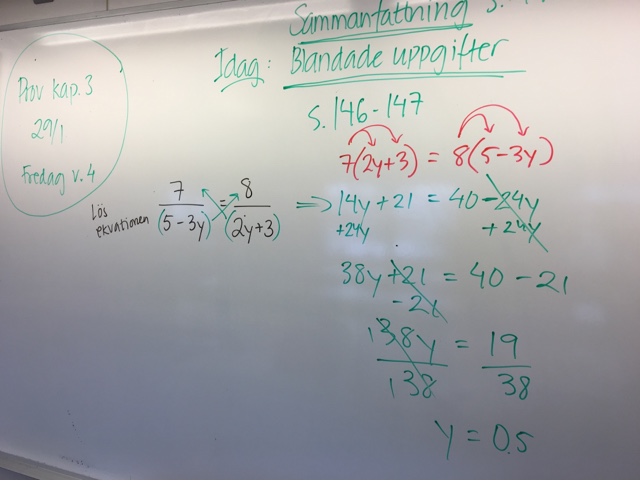 Sammanfattning s.
Idag: Blandade uppgifter
s. 146-147
Prov kap. 3
29/1
Fredag v. 4
Lös ekvationen
7/(5-3y) = 8/(2y+3)
7(2y+3) = 8(5-3y)
=> 14y+21 = 40-24y
+24y +24y
38y+21 = 40-21
-21
38y/38 = 19/38
y = 0.5